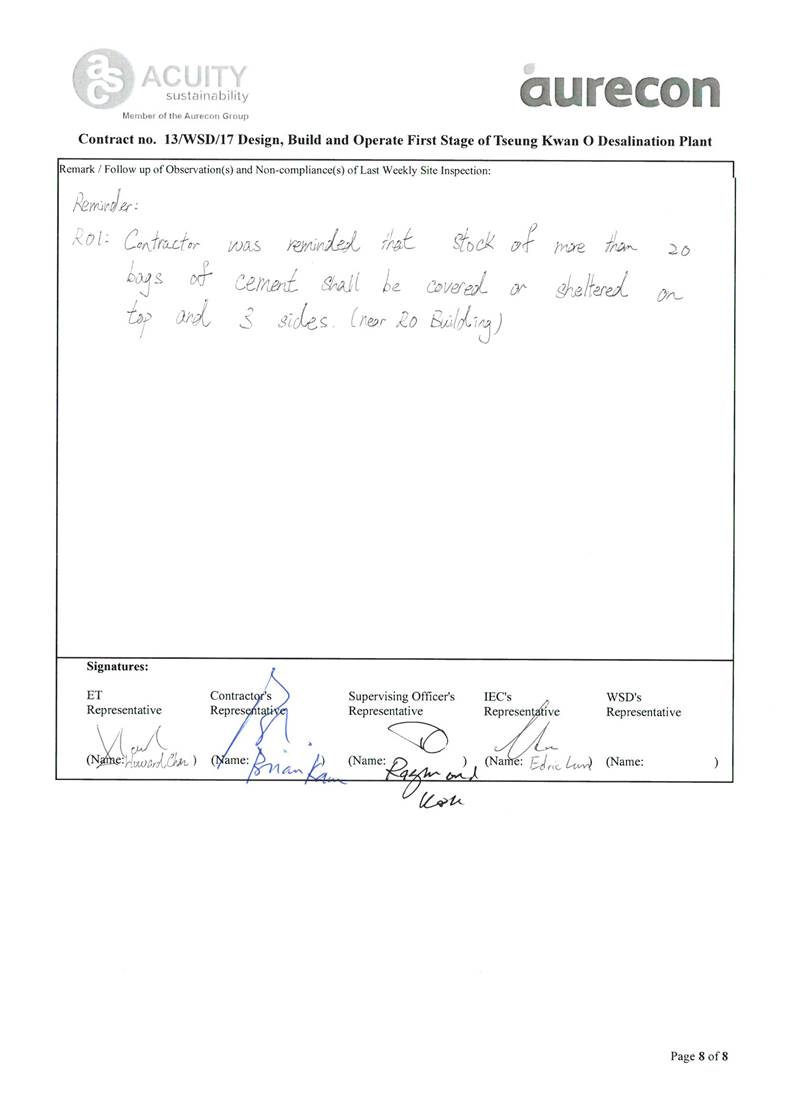 asc ACUITY
sustainability
Member of the Aurecon Group
aurecon
Contract no. 13/WSD/17 Design, Build and Operate First Stage of Tseung Kwan O Desalination Plant
Remark / Follow up of Observation(s) and Non-compliance(s) of Last Weekly Site Inspection:
Reminder:
R01: Contractor was reminded that stock of more than 20
bags of cement shall be covered or sheltered on
top and 3 sides. (near RO Building)
Signatures:
ET Representative
Contractor's Representative
Supervising Officer's Representative
IEC's Representative
WSD's Representative
(Name: Howard Chan )
(Name: Brian Kam )
(Name: Raymond )
(Name: Edric )
(Name: )
Page 8 of 8